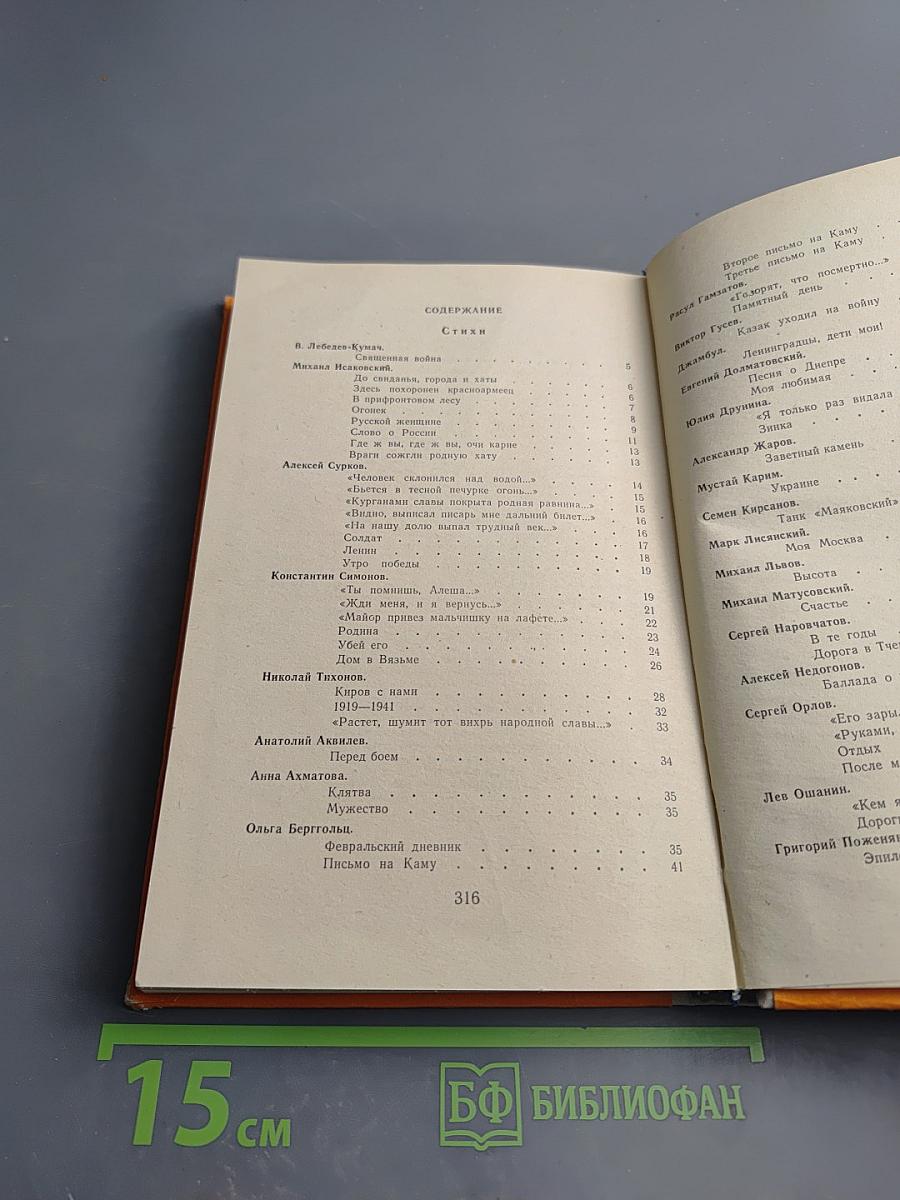 СОДЕРЖАНИЕ
Стихи
В. Лебедев-Кумач.
Священная война . . . . . . . . . 5
Михаил Исаковский.
До свиданья, города и хаты . . . . . 6
Здесь похоронен красноармеец . . . . 6
В прифронтовом лесу . . . . . . . 7
Огонек . . . . . . . . . . 8
Русской женщине . . . . . . . . 9
Слово о России . . . . . . . . 11
Где ж вы, где ж вы, очи карие . . . . 13
Враги сожгли родную хату . . . . . 13
Алексей Сурков.
«Человек склонился над водой...» . . . . 14
«Бьется в тесной печурке огонь...» . . . . 15
«Курганами славы покрыта родная равнина...» . . 15
«Видно, выписал писарь мне дальний билет...» . . 16
«На нашу долю выпал трудный век...» . . . 16
Солдат . . . . . . . . . . 17
Ленин . . . . . . . . . . 18
Утро победы . . . . . . . . . 19
Константин Симонов.
«Ты помнишь, Алеша...» . . . . . . 19
«Жди меня, и я вернусь...» . . . . . . 21
«Майор привез мальчишку на лафете...» . . . 22
Родина . . . . . . . . . . 23
Убей его . . . . . . . . . . 24
Дом в Вязьме . . . . . . . . . 26
Николай Тихонов.
Киров с нами . . . . . . . . . 28
1919—1941 . . . . . . . . . . 32
«Растет, шумит тот вихрь народной славы...» . . 33
Анатолий Аквилев.
Перед боем . . . . . . . . . . 34
Анна Ахматова.
Клятва . . . . . . . . . . 35
Мужество . . . . . . . . . . 35
Ольга Берггольц.
Февральский дневник . . . . . . . 35
Письмо на Каму . . . . . . . . 41
316
Второе письмо на Каму . .
Третье письмо на Каму . .
Расул Гамзатов.
«Говорят, что посмертно...»
Памятный день . . .
Виктор Гусев.
Казак уходил на войну
Джамбул.
Ленинградцы, дети мои!
Евгений Долматовский.
Песня о Днепре . .
Моя любимая . .
Юлия Друнина.
«Я только раз видала
Зинка . . . .
Александр Жаров.
Заветный камень . .
Мустай Карим.
Украине . . . .
Семен Кирсанов.
Танк «Маяковский»
Марк Лисянский.
Моя Москва . .
Михаил Львов.
Высота . . .
Михаил Матусовский.
Счастье . . .
Сергей Наровчатов.
В те годы . .
Дорога в
Алексей Недогонов.
Баллада о
Сергей Орлов.
«Его
«Руками,
Отдых
После
Лев Ошанин.
«Кем
Григорий
15 см
БФ БИБЛИОФАН